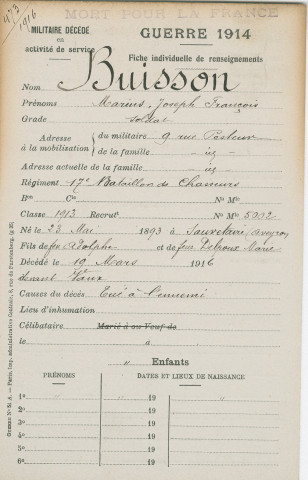 473
1916
MORT POUR LA FRANCE
MILITAIRE DÉCÉDÉ
en
activité de service
GUERRE 1914
Fiche individuelle de renseignements
Nom Buisson
Prénoms Marius, Joseph François
Grade soldat
Adresse à la mobilisation du militaire 9 rue Pasteur
de la famille id
Adresse actuelle de la famille id
Régiment 17e Bataillon de Chasseurs
Bon Cie No Mle
Classe 1913 Recrut No Mle 5002
Né le 23 Mai 1893 à Sauveterre Aveyron
Fils de feu Adolphe et de feue Delroux Marie
Décédé le 19 Mars 1916
devant Vaux
Causes du décès Tué à l'ennemi
Lieu d'inhumation
Célibataire Marié à ou Veuf de
le à
" Enfants
PRÉNOMS DATES ET LIEUX DE NAISSANCE
1o " 19 "
2o 19
3o 19
4o 19
5o 19
6o 19
Guerre No 21 A. — Paris, Imp. administrative Centrale, 8, rue de Furstenberg.